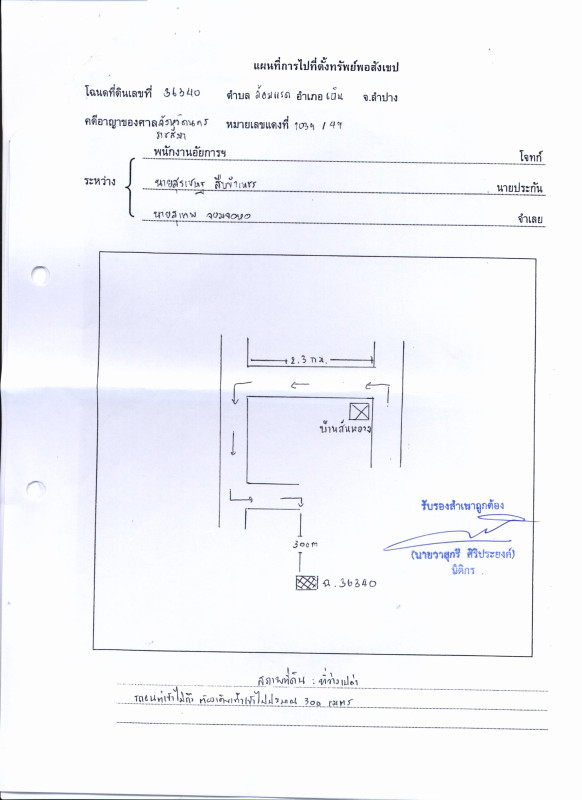 แผนที่การไปที่ตั้งทรัพย์พอสังเขป
โฉนดที่ดินเลขที่ 36340 ตำบล ล้อมแรด อำเภอ เถิน จ.ลำปาง
คดีอาญาของศาล หมายเลขแดงที่ 1034 / 49
พนักงานอัยการฯ โจทก์
ระหว่าง นายสุรเชษฐ นายประกัน
นายสุเทพ จำเลย
2.3 กม.
บ้านสันหลวง
รับรองสำเนาถูกต้อง
(นายวาสุกรี ศิริประยงค์)
นิติกร
300 m
ฉ.36340
สภาพที่ดิน : ที่ว่างเปล่า
รถยนต์เข้าไม่ถึง ต้องเดินเท้าเข้าไปประมาณ 300 เมตร